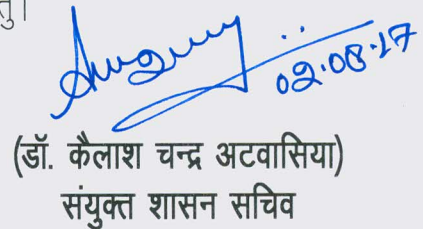 तु।
02.08.17
(डॉ. कैलाश चन्द्र अटवासिया)
संयुक्त शासन सचिव